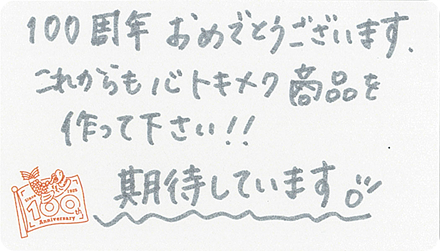 100周年 おめでとうございます.
これからも 心トキメク 商品を
作って下さい!!
期待しています
since 1925
100th
Anniversary